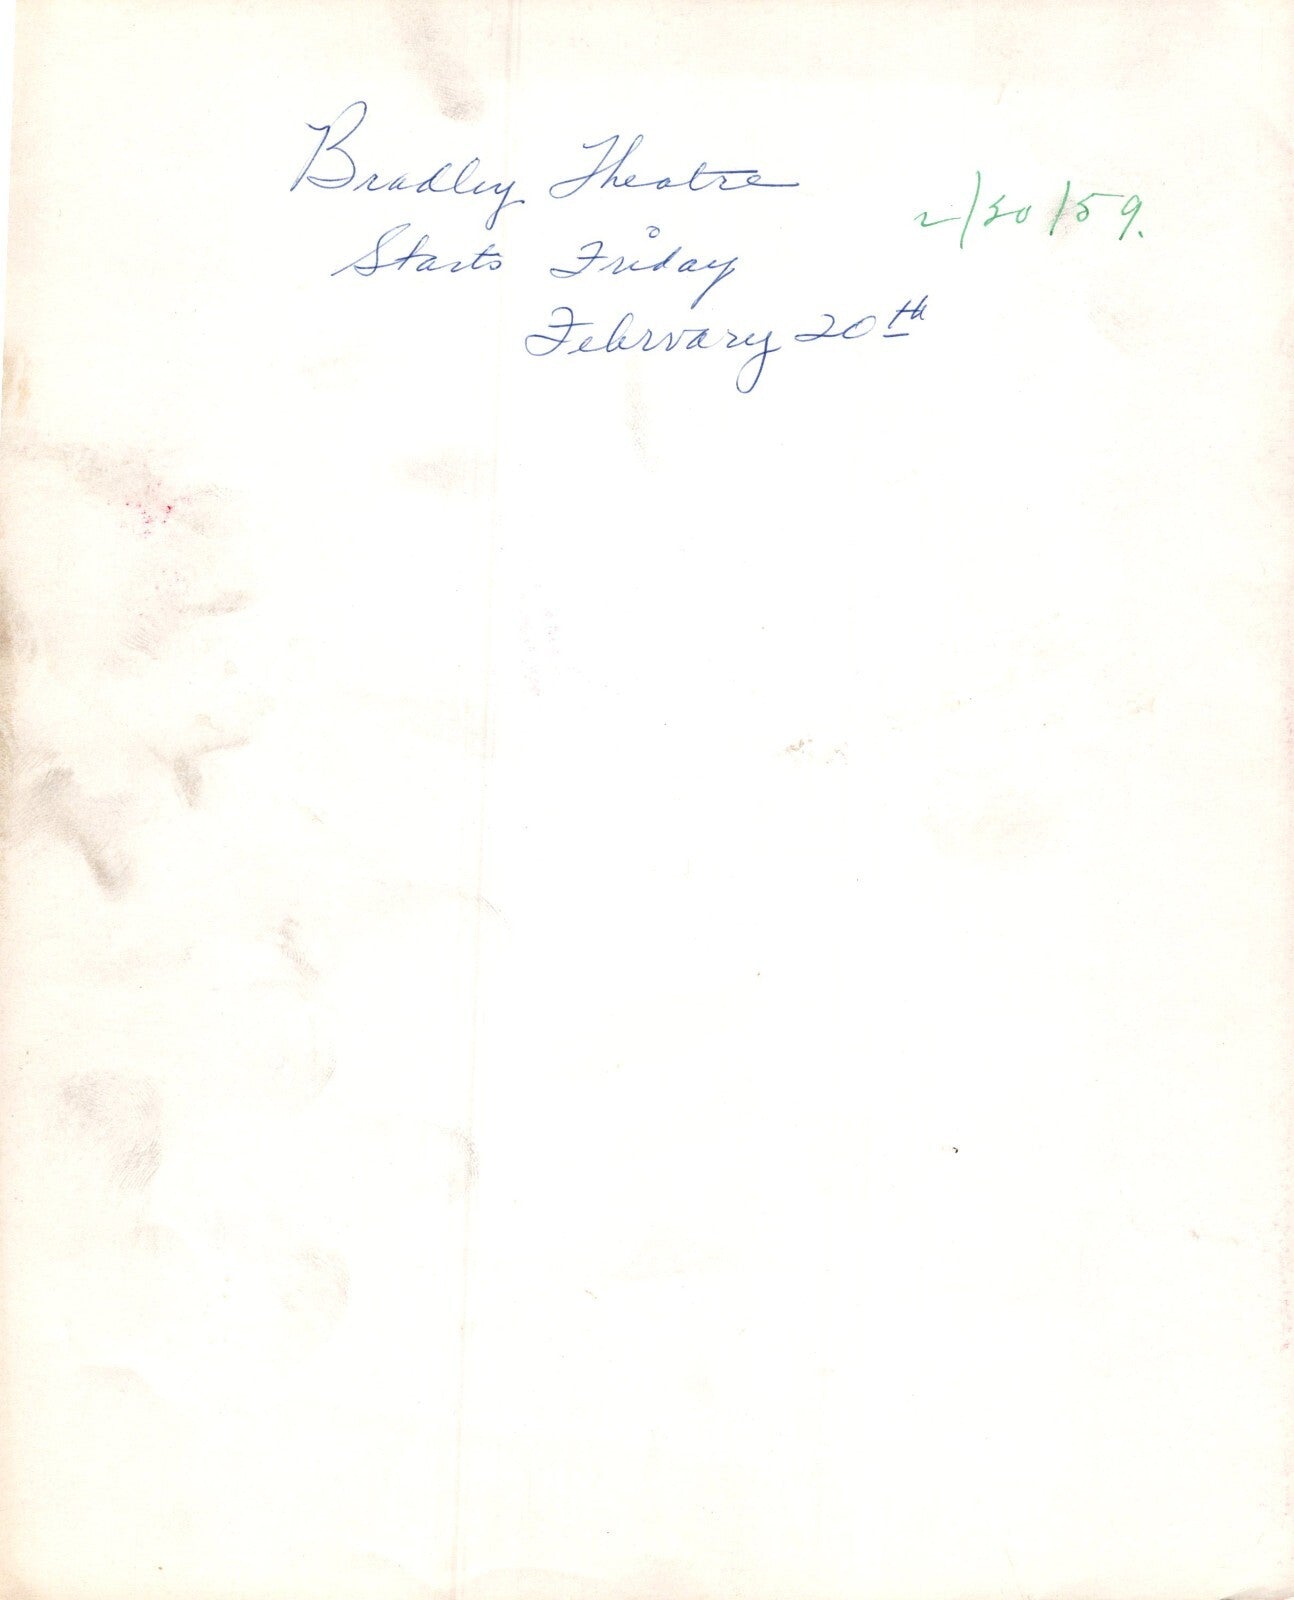 Bradley Theatre
2/20/59.
Starts Friday
February 20th